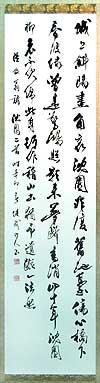 城上斜陽畫角哀沈園非復舊池臺傷心橋下
春波綠曾是驚鴻照影來夢斷香消四十年沈園
柳老不吹綿此身行作稽山土猶吊遺蹤一泫然
沈園二首